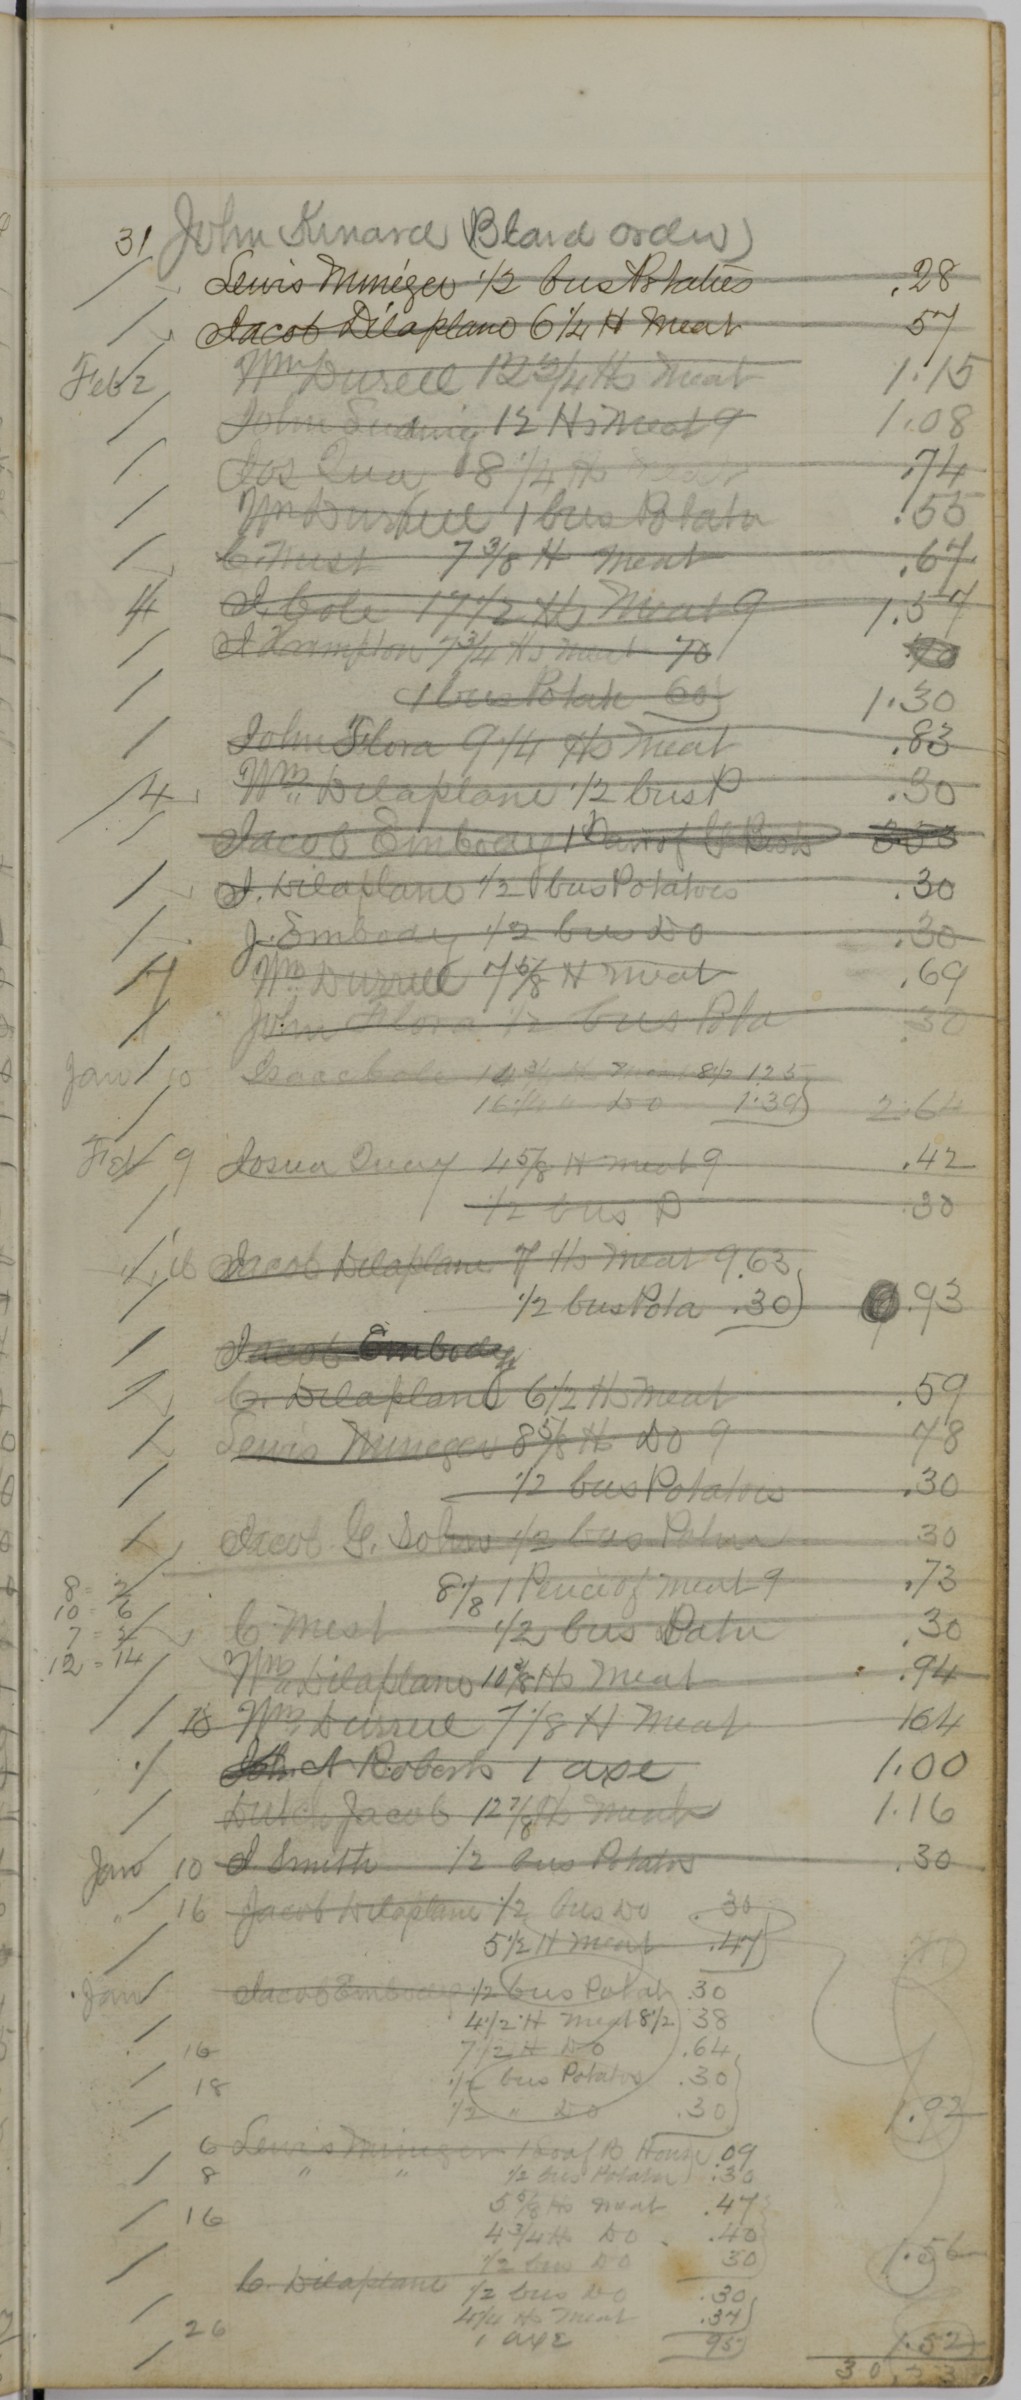 31 John Kinard (Board order)
Lewis Mineger 1/2 bus Potatoes .28
Jacob Dilaplane 6 1/4 H Meat 57
Feb 2 Wm Durell 12 3/4 Hs Meat 1.15
John 12 Hs Meat 9 1.08
Jos 8 1/4 Hs Meat .74
Wm Durrell 1 bus Potato .55
C. Mest 7 3/8 H Meat .67
4 I. Cole 17 1/2 Hs Meat 9 1.57
J Frampton 7 3/4 Hs Meat 70
1 bus Potato 60 1.30
John Flora 9 1/4 Hs Meat .83
4 Wm Dilaplane 1/2 bus P .30
Jacob Embody 1 Pair of
J. Dilaplane 1/2 bus Potatoes .30
J. Embody 1/2 bus Do .30
7 Wm Durrell 7 5/8 H Meat .69
John Flora 1/2 bus Pota 30
Jan 10 Isaac Cole 14 3/4 H Meat 8 1/2 1.25
Do 1.39 2.64
Feb 9 4 5/8 H Meat 9 .42
1/2 bus P .30
16 Jacob Dilaplane 7 Hs Meat 9 .63
1/2 bus Pota .30 .93
Jacob Embody
C. Dilaplane 6 1/2 Hs Meat .59
Lewis Mineger 8 5/8 Hs Do 9 78
1/2 bus Potatoes .30
Jacob G. 1/2 bus 30
8 1/8 1 Peice of Meat 9 .73
8 = 2
10 = 6
7 =
C. Mest 1/2 bus Patu .30
12 = 14
Wm Dilaplane 10 3/8 Hs Meat .94
10 Wm Durrell 7 1/8 H Meat 64
A Roberts 1 axe 1.00
Dutch Jacob 12 7/8 Hs Meat 1.16
Jan 10 J. Smith 1/2 bus Potatos .30
" 16 Jacob Dilaplane 1/2 bus Do .30
5 1/2 H Meat .47
Jan Jacob Embody 1/2 bus Potat .30
4 1/2 H Meat 8 1/2 38
16 7 1/2 H Do .64
18 1/2 bus Potatos .30
1/2 " Do .30 1.92
6 Lewis Mineger 1 .09
8 " " 1/2 bus Potatu .30
5 5/8 Hs Meat .47
16 4 3/4 H Do .40
1/2 bus Do 30 1.56
C. Dilaplane 1/2 bus Do .30
4 1/4 Hs Meat .37
26 1 axe 95 1.52